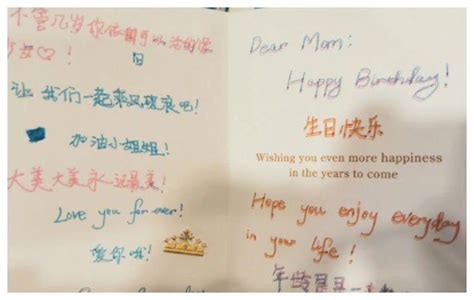 不管几岁你依旧可以活的像
少女♡!
让我们一起乘风破浪吧!
加油小姐姐!
大美大美永远最美!
Love you forever!
爱你哦!
Dear Mom:
Happy Birthday!
生日快乐
Wishing you even more happiness
in the years to come
Hope you enjoy everyday
in your life!
年龄是